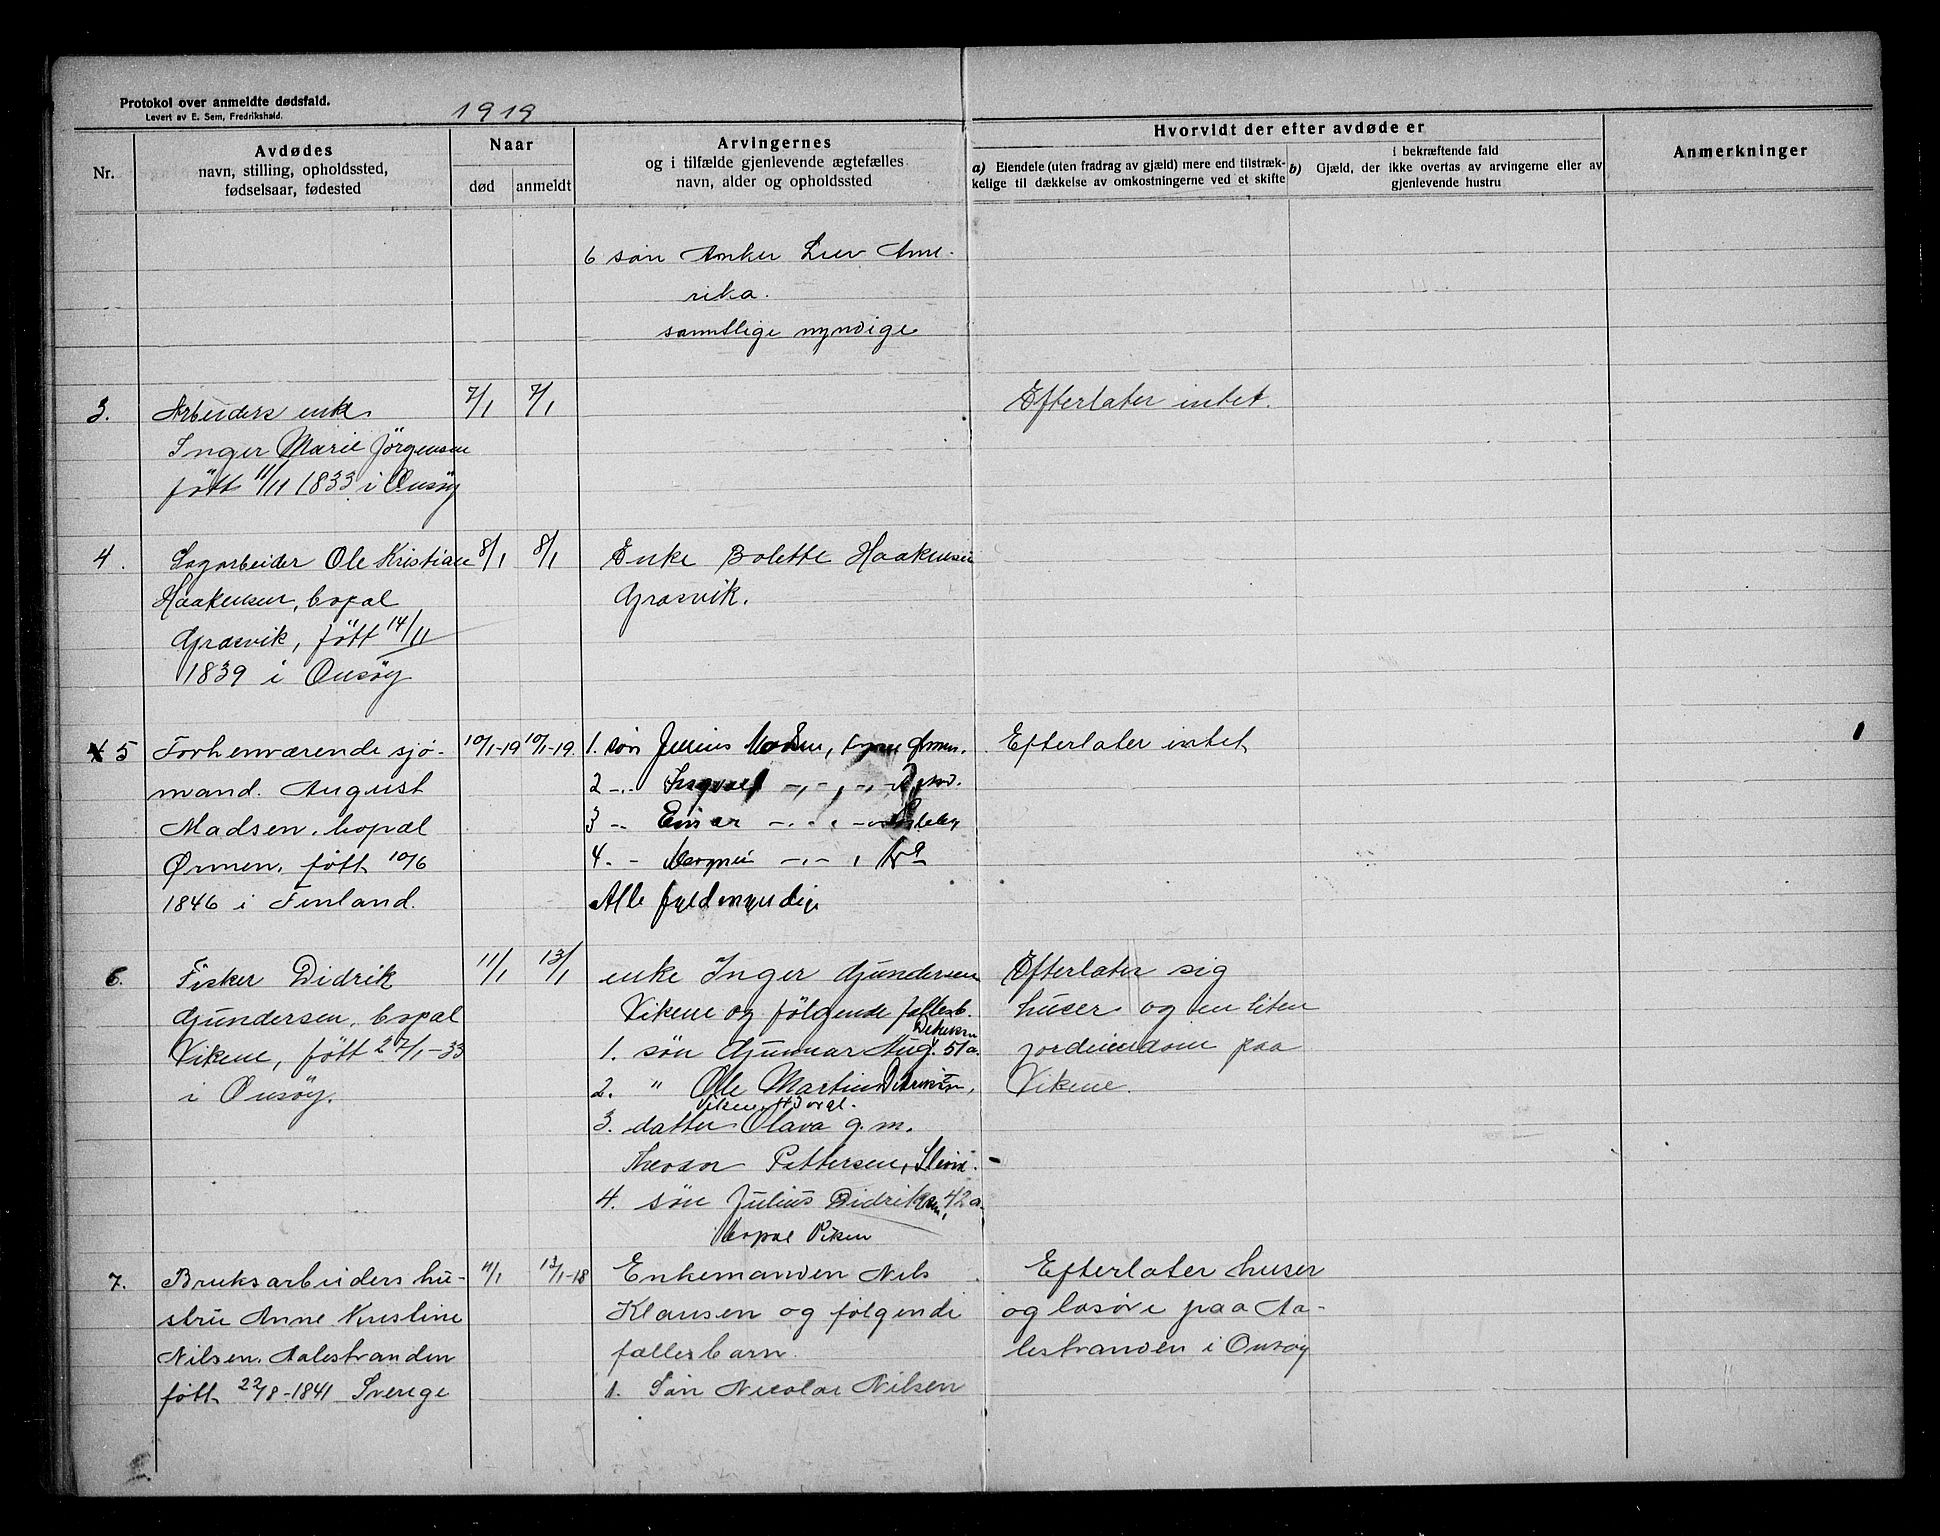 Protokol over anmeldte dødsfald.
Levert av E. Sem, Fredrikshald.
1919
Nr.
Avdødes
navn, stilling, opholdssted,
fødselsaar, fødested
Naar
død
anmeldt
Arvingernes
og i tilfælde gjenlevende ægtefælles
navn, alder og opholdssted
Hvorvidt der efter avdøde er
a) Eiendele (uten fradrag av gjæld) mere end tilstræk-
kelige til dækkelse av omkostningerne ved et skifte
i bekræftende fald
b) Gjæld, der ikke overtas av arvingerne eller av
gjenlevende hustru
Anmerkninger
6 søn Anker Liev Ame-
rika.
samtlige myndige
3. Arbeiders enke
Inger Marie Jörgensen
født 11/11 1833 i Onsöy
7/1 7/1
Efterlater intet.
4. Sagarbeider Ole Kristian
Haakensen, bopal
Græsvik, født 14/11
1839 i Onsöy
8/1 8/1
Enke Bolette Haakensen
Græsvik.
5 Forhenværende sjø-
mand. August
Madsen, bopæl
Ørmen, født 10/6
1846 i Finland.
10/1-19 10/1-19
1. søn Julius Madsen, Ørmen.
2 -.- Ingvael -.-.-.-
3 -.- Einar -.-.-
4. - -.-.
Alle fuldmyndige
Efterlater intet
1
6. Fisker Didrik
Gundersen, bopal
Vikene, født 27/1-33
i Onsöy.
11/1 13/1
enke Inger Gundersen
Vikene og følgende fællesb.
1. søn Gunnar Aug. 51 a.
2. " Ole Martin
3. datter Olava g.m.
Theodor Pettersen,
4. søn Julius Didriksen, 42 a.
bopæl Viken
Efterlater sig
huser og en liten
jordeiendom paa
Vikene.
7. Bruksarbeiders hu-
stru Anne Kristine
Nilsen, Aalestranden
født 22/8-1841 Sverige
11/1 13/1-18
Enkemanden Nils
Klausen og følgende
fællesbarn.
1. Søn Nicolai Nilsen
Efterlater huser
og løsøre paa Aa-
lestranden i Onsöy